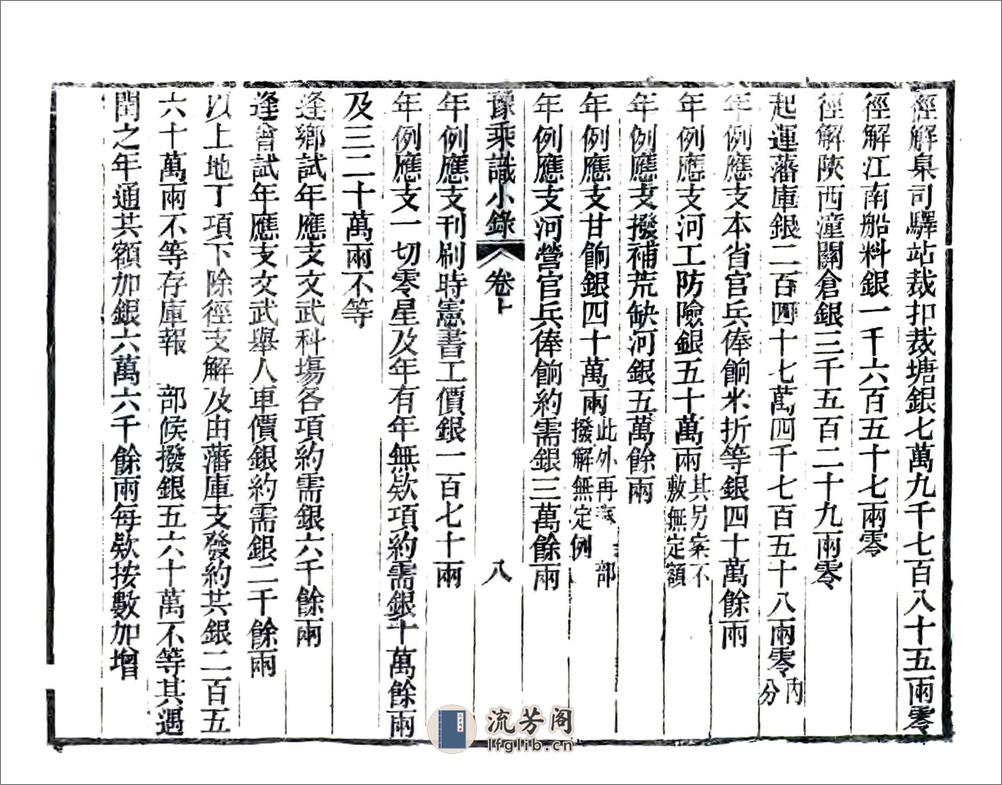 徑解臬司驛站裁扣裁塘銀七萬九千七百八十五兩零
徑解江南船料銀一千六百五十七兩零
徑解陝西潼關倉銀三千五百二十九兩零
起運藩庫銀二百四十七萬四千七百五十八兩零內分
年例應支本省官兵俸餉米折等銀四十萬餘兩
年例應支河工防險銀五十萬兩其另案不敷無定額
年例應支撥補荒缺河銀五萬餘兩
年例應支甘餉銀四十萬兩此外再部撥解無定例
年例應支河營官兵俸餉約需銀三萬餘兩
豫乘識小錄 卷上 八
年例應支刊刷時憲書工價銀一百七十兩
年例應支一切零星及年有年無欵項約需銀十萬餘兩
及三二十萬兩不等
逢鄉試年應支文武科場各項約需銀六千餘兩
逢會試年應支文武舉人車價銀約需銀二千餘兩
以上地丁項下除徑支解及由藩庫支發約共銀二百五
六十萬兩不等存庫報 部候撥銀五六十萬不等其遇
閏之年通共額加銀六萬六千餘兩每欵按數加增
流芳阁
lfglib.cn